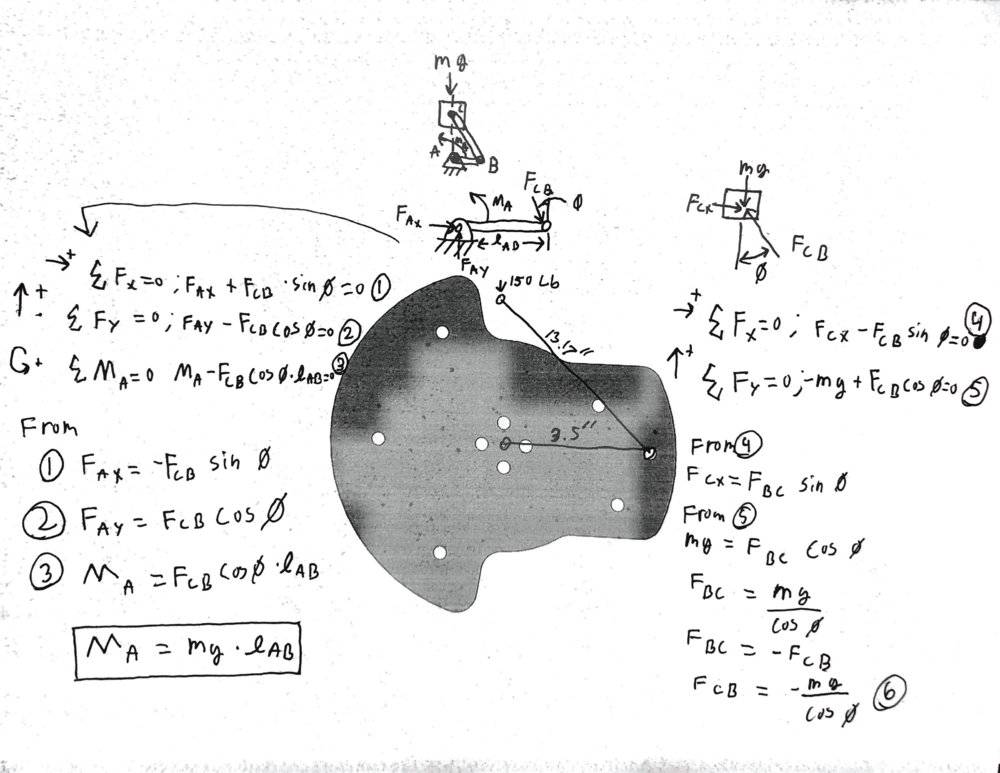 mg
C
A
B
F_CB
ϕ
M_A
F_AX
l_AB
F_AY
→+ Σ F_x=0 ; F_AX + F_CB · sin ϕ = 0 ①
↑+ Σ F_Y = 0 ; F_AY - F_CB cos ϕ=0 ②
↺+ Σ M_A=0 M_A - F_CB cos ϕ · l_AB=0 ③
From
① F_AX = -F_CB sin ϕ
② F_AY = F_CB cos ϕ
③ M_A = F_CB cos ϕ · l_AB
M_A = mg · l_AB
150 Lb
13.17"
3.5"
mg
F_CX
F_CB
ϕ
→+ Σ F_x=0 ; F_CX - F_CB sin ϕ=0 ④
↑+ Σ F_Y=0 ; -mg + F_CB cos ϕ=0 ⑤
From ④
F_CX = F_BC sin ϕ
From ⑤
mg = F_BC cos ϕ
F_BC = mg / cos ϕ
F_BC = -F_CB
F_CB = - mg / cos ϕ ⑥